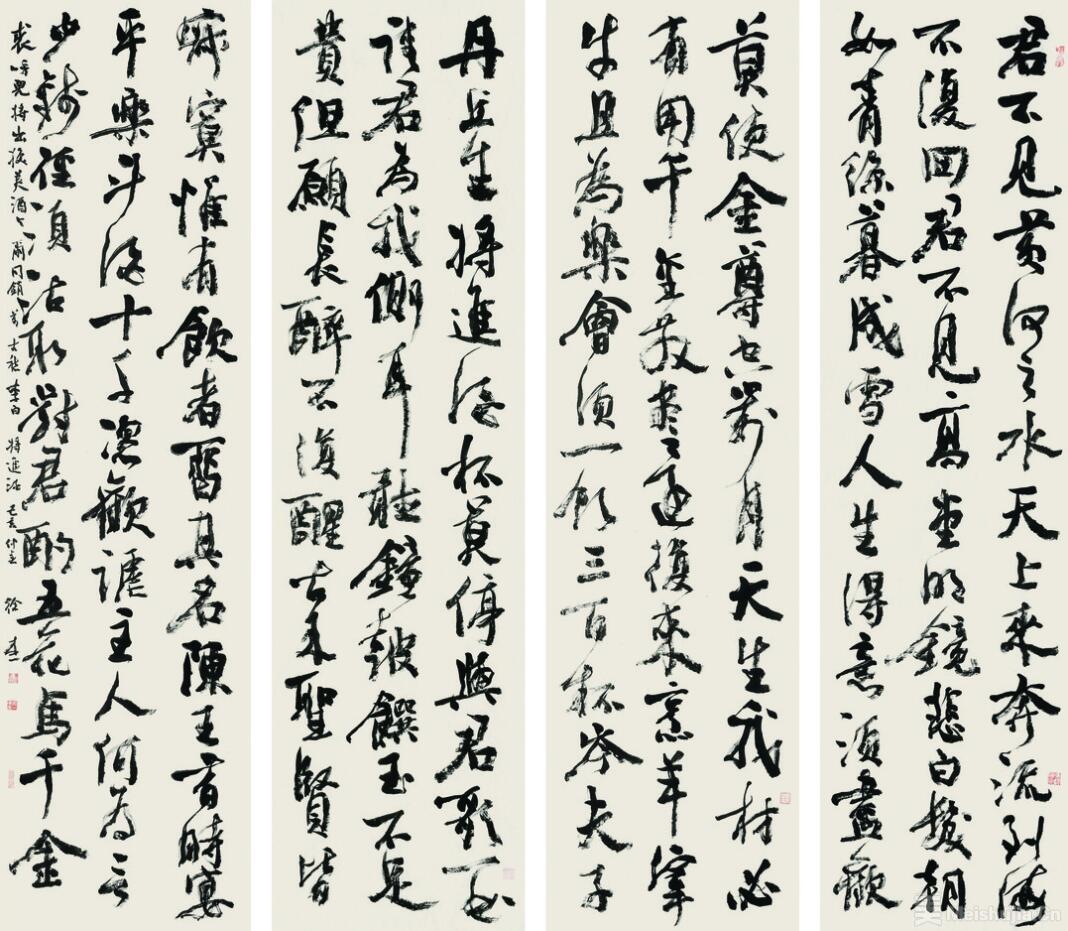 君不見黃河之水天上來奔流到海
不復回君不見高堂明鏡悲白髮朝
如青絲暮成雪人生得意須盡歡
莫使金尊空對月天生我材必
有用千金散盡還復來烹羊宰
牛且為樂會須一飲三百杯岑夫子
丹丘生將進酒杯莫停與君歌一曲
請君為我側耳聽鐘鼓饌玉不足
貴但願長醉不復醒古來聖賢皆
寂寞惟有飲者留其名陳王昔時宴
平樂斗酒十千恣歡謔主人何為言
少錢徑須沽取對君酌五花馬千金
裘呼兒將出換美酒與爾同銷萬古愁 李白 將進酒 己亥 徐本一
meishujia.cn